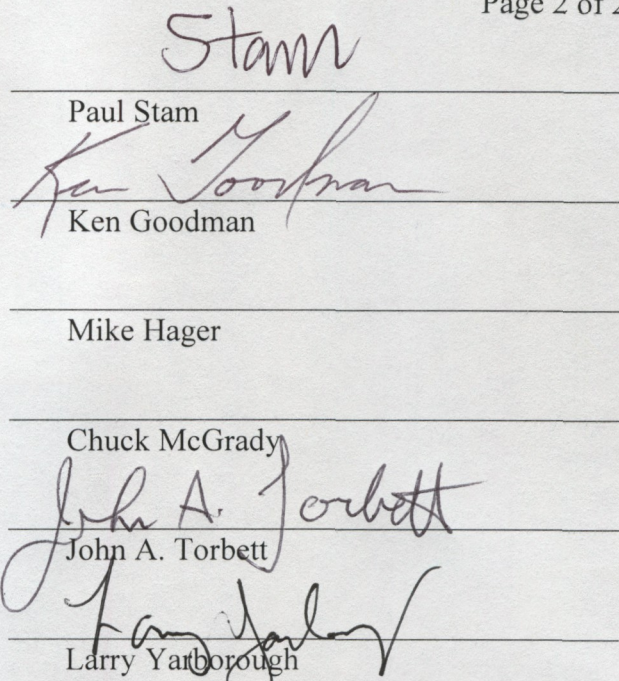 Page 2 of 2
Stam
Paul Stam
Ken Goodman
Ken Goodman
Mike Hager
Chuck McGrady
John A. Torbett
John A. Torbett
Larry Yarborough